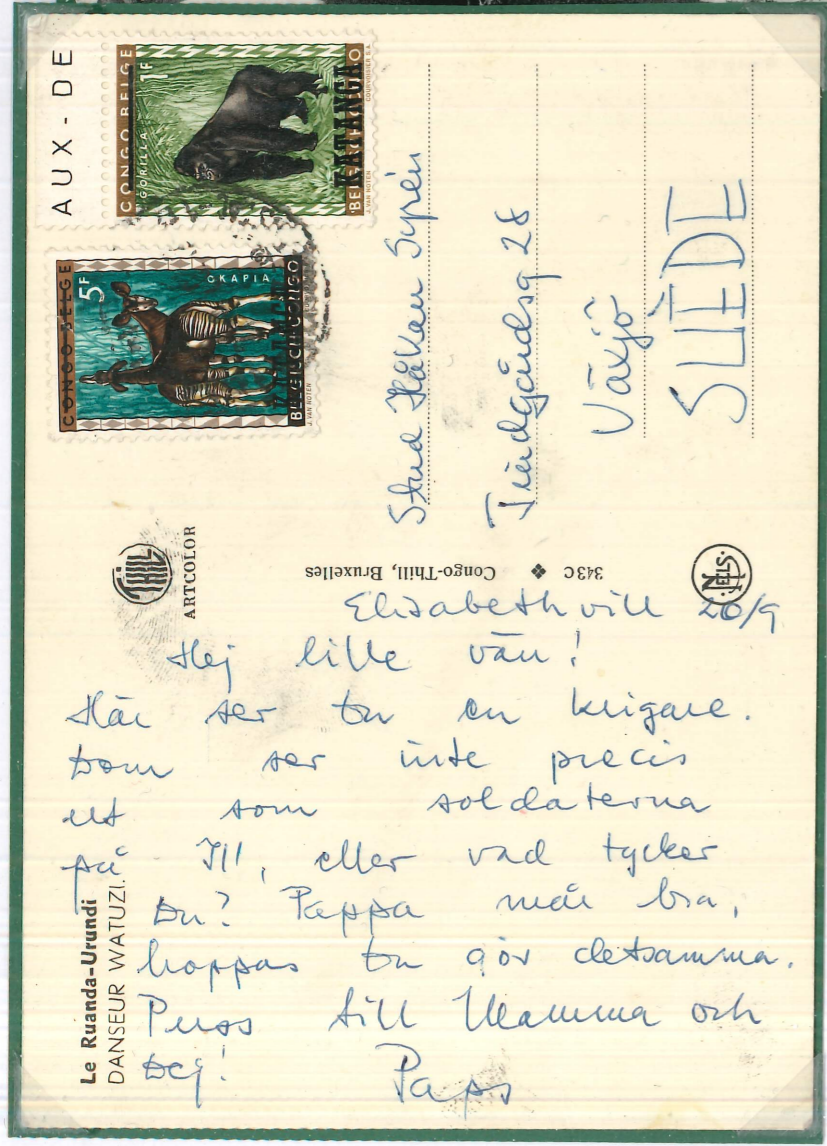 AUX - DE
CONGO BELGE
GORILLA
1F
KATANGA
BELGISCH CONGO
J. VAN NOTEN
COURVOISIER S.A.
CONGO BELGE
5F
OKAPIA
KATANGA
BELGISCH CONGO
J. VAN NOTEN
Stud Håkan Syrén
Tindgårdsg 28
Växjö
SUÈDE
THILL
ARTCOLOR
343C ❖ Congo-Thill, Bruxelles
NELS
Elisabethvill 20/9
Hej lille vän!
Här ser Du en krigare.
Dom ser inte precis
ut som soldaterna
på I11, eller vad tycker
Du? Pappa mår bra,
hoppas Du gör detsamma.
Puss till Mamma och
Dej! Paps
Le Ruanda-Urundi
DANSEUR WATUZI.